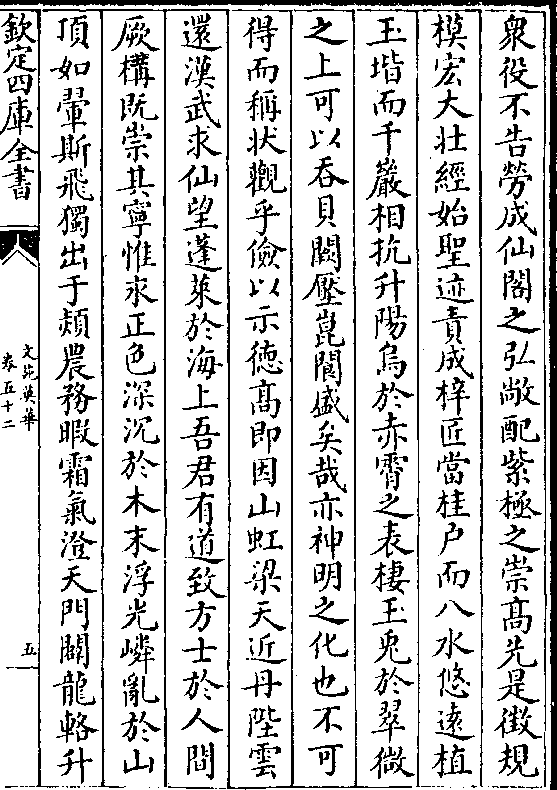 衆役不告勞成仙閣之弘敞配紫極之崇髙先是徴規
模宏大壯經始聖迹責成梓匠當桂户而八水悠逺植
玉堦而千巖相抗升陽烏於赤霄之表棲玉兎於翠微
之上可以吞貝闕壓崑閬盛矣哉亦神明之化也不可
得而稱状觀乎儉以示徳髙即因山虹梁天近丹陛雲
還漢武求仙望蓬萊於海上吾君有道致方士於人間
厥構既崇其寧惟永正色深沉於木末浮光嶙亂於山
頂如翬斯飛獨出于頰農務暇霜氣澄天門闢龍輅升
欽定四庫全書
文苑英華
卷五十二
五